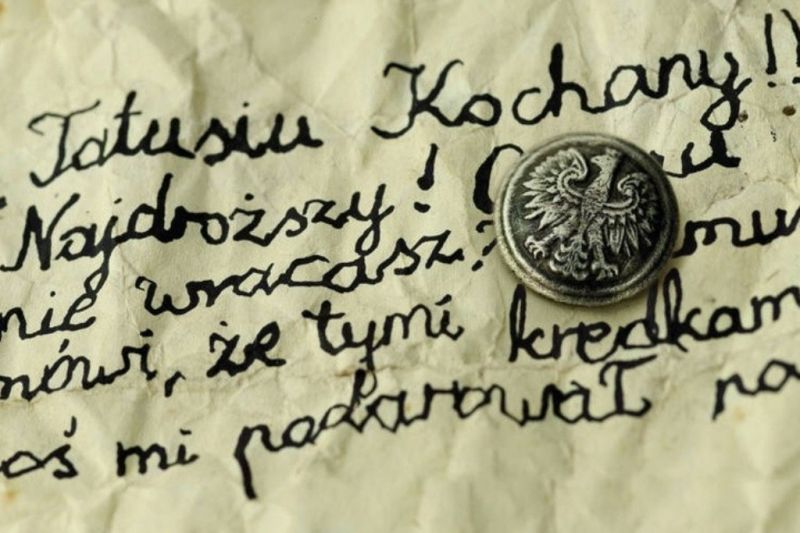 Tatusiu Kochany!!
Najdroższy!
nie wracasz?
mówi, że tymi kredkam
oś mi podarował na